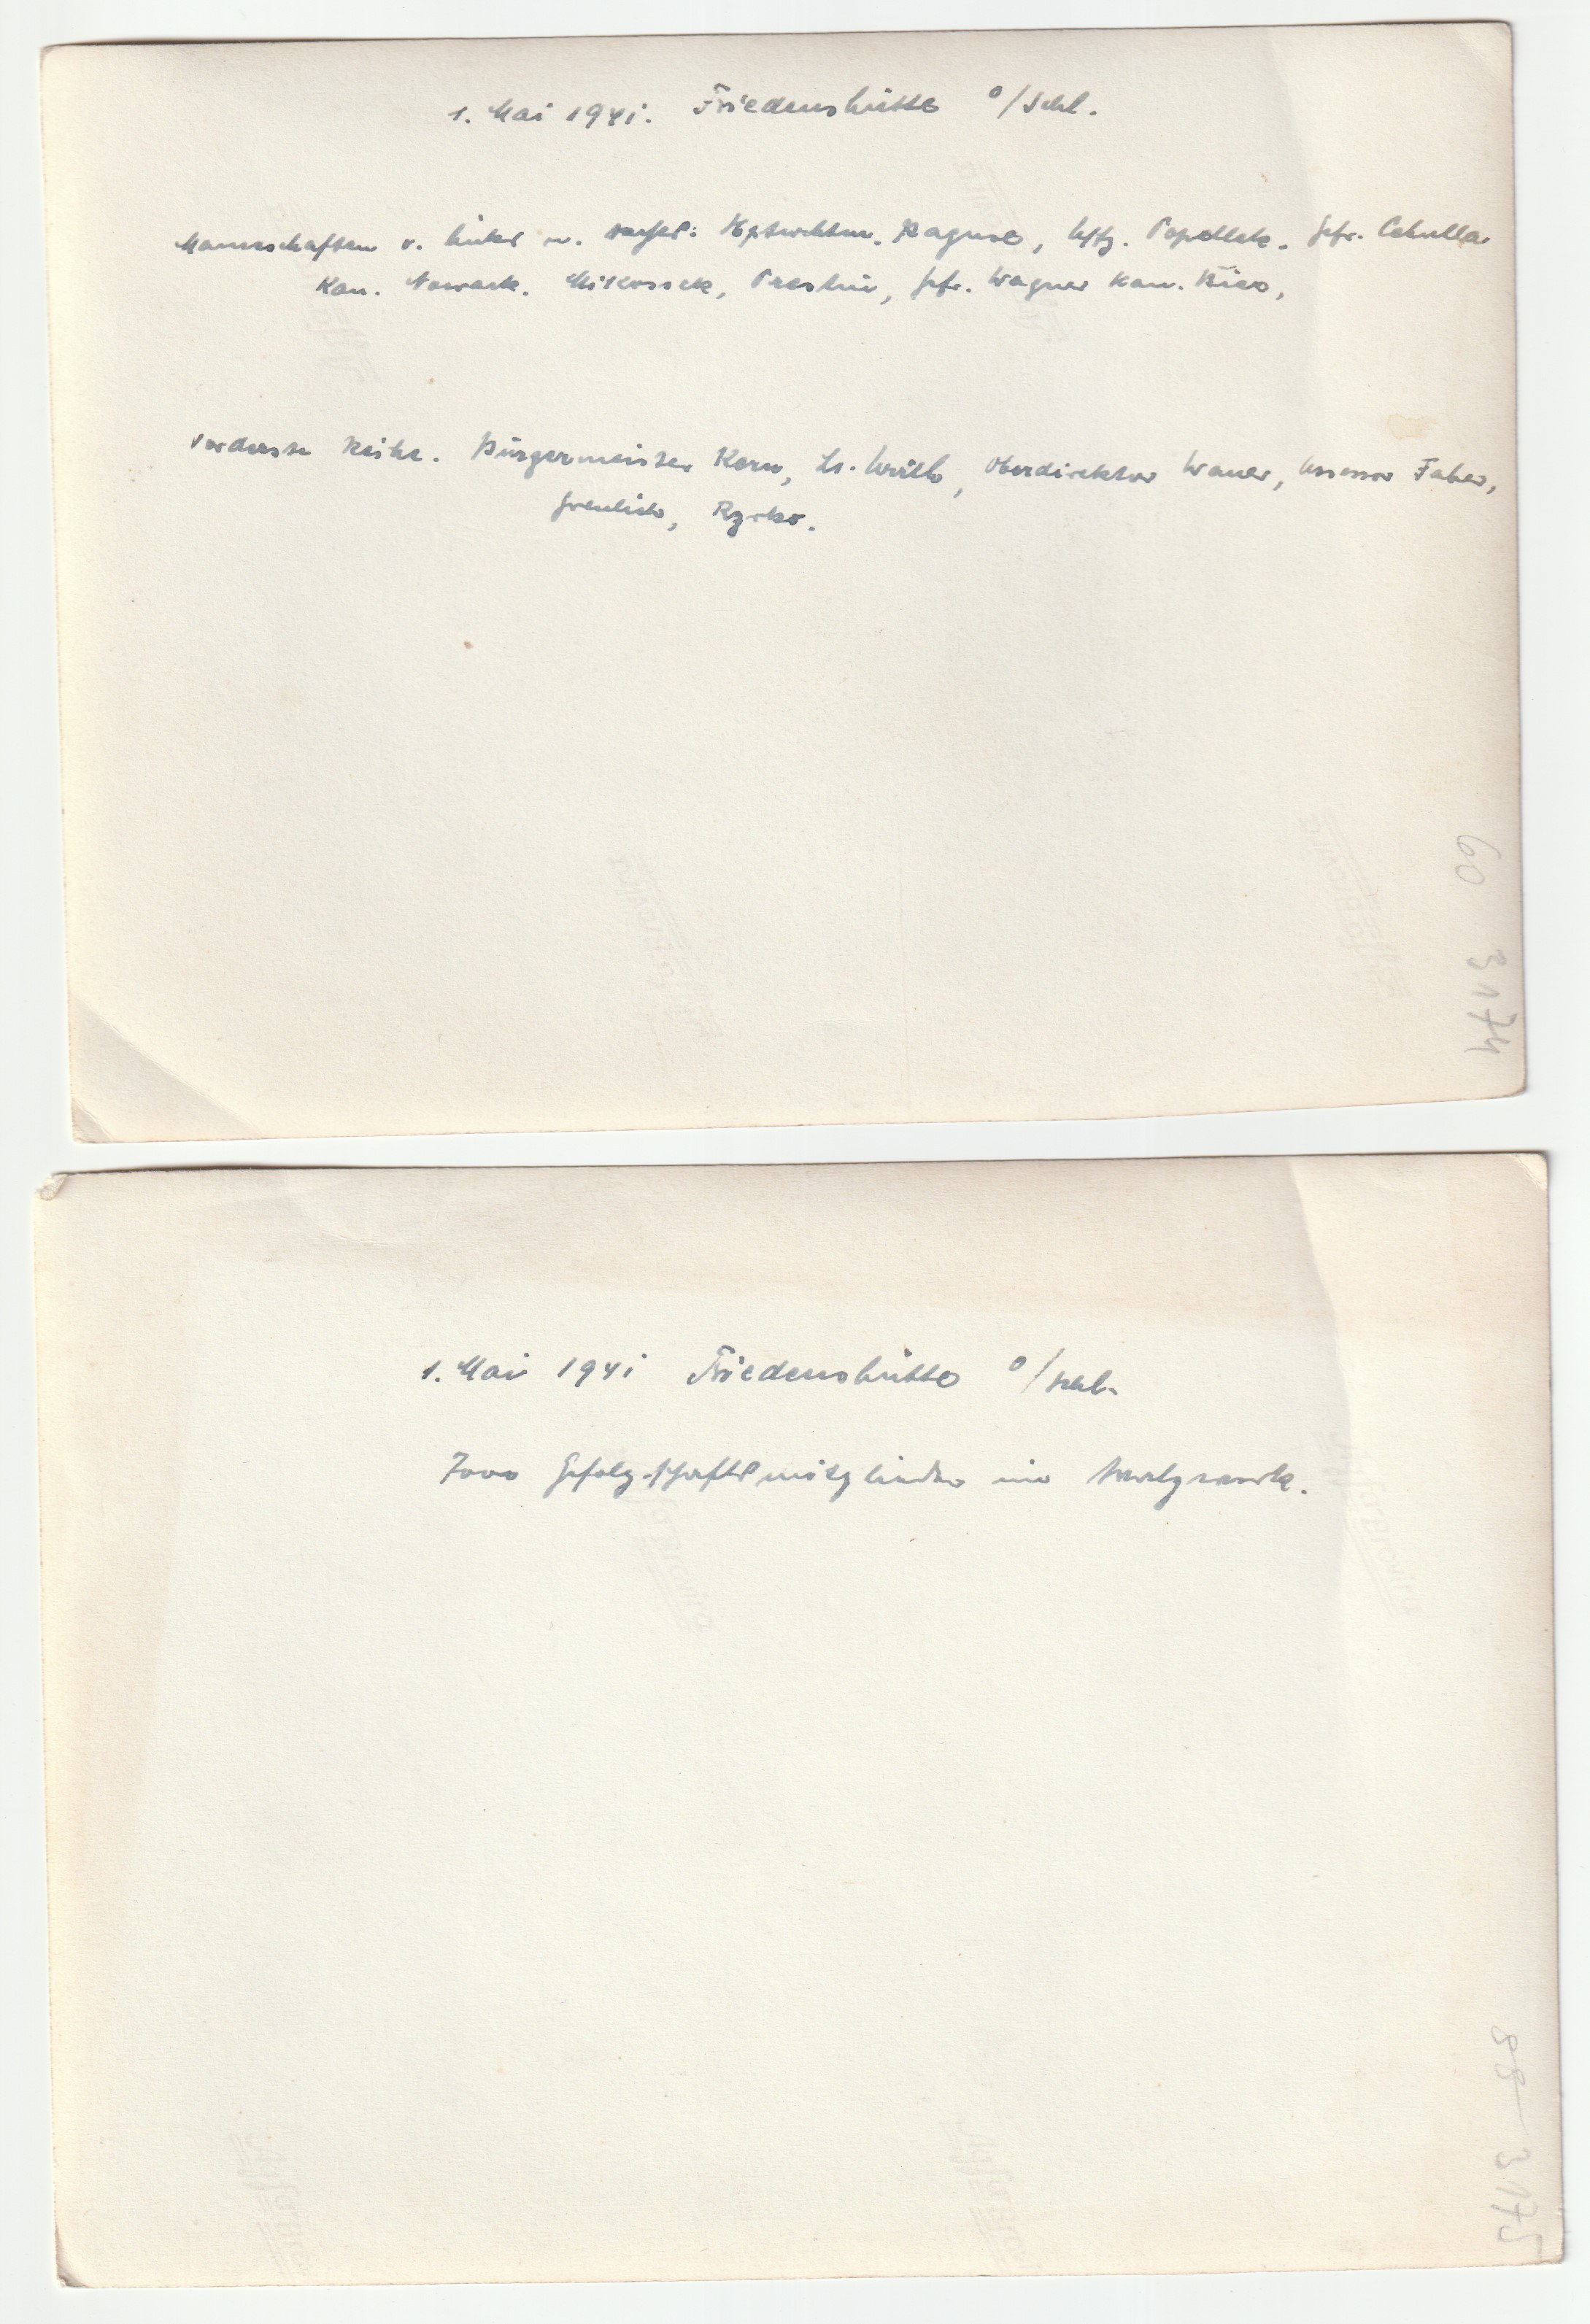 1. Mai 1941. Friedenshütte O/Schl.
Mannschaften v. links n. rechts: Hptwchtm. Raguse, Uffz. Popollek. Gefr. Cebulla
Kan. Nowack. Mikossek, Preslin, Gefr. Wagner Kan.
Vorderste Reihe. Bürgermeister Kern, Lt. Oberdirektor Wauer, Assessor Faber,
Greulich,
60 3174
1. Mai 1941 Friedenshütte O/Schl.
7000 Gefolgschaftsmitglieder im Walzwerk.
Agfa Brovira
88-3175